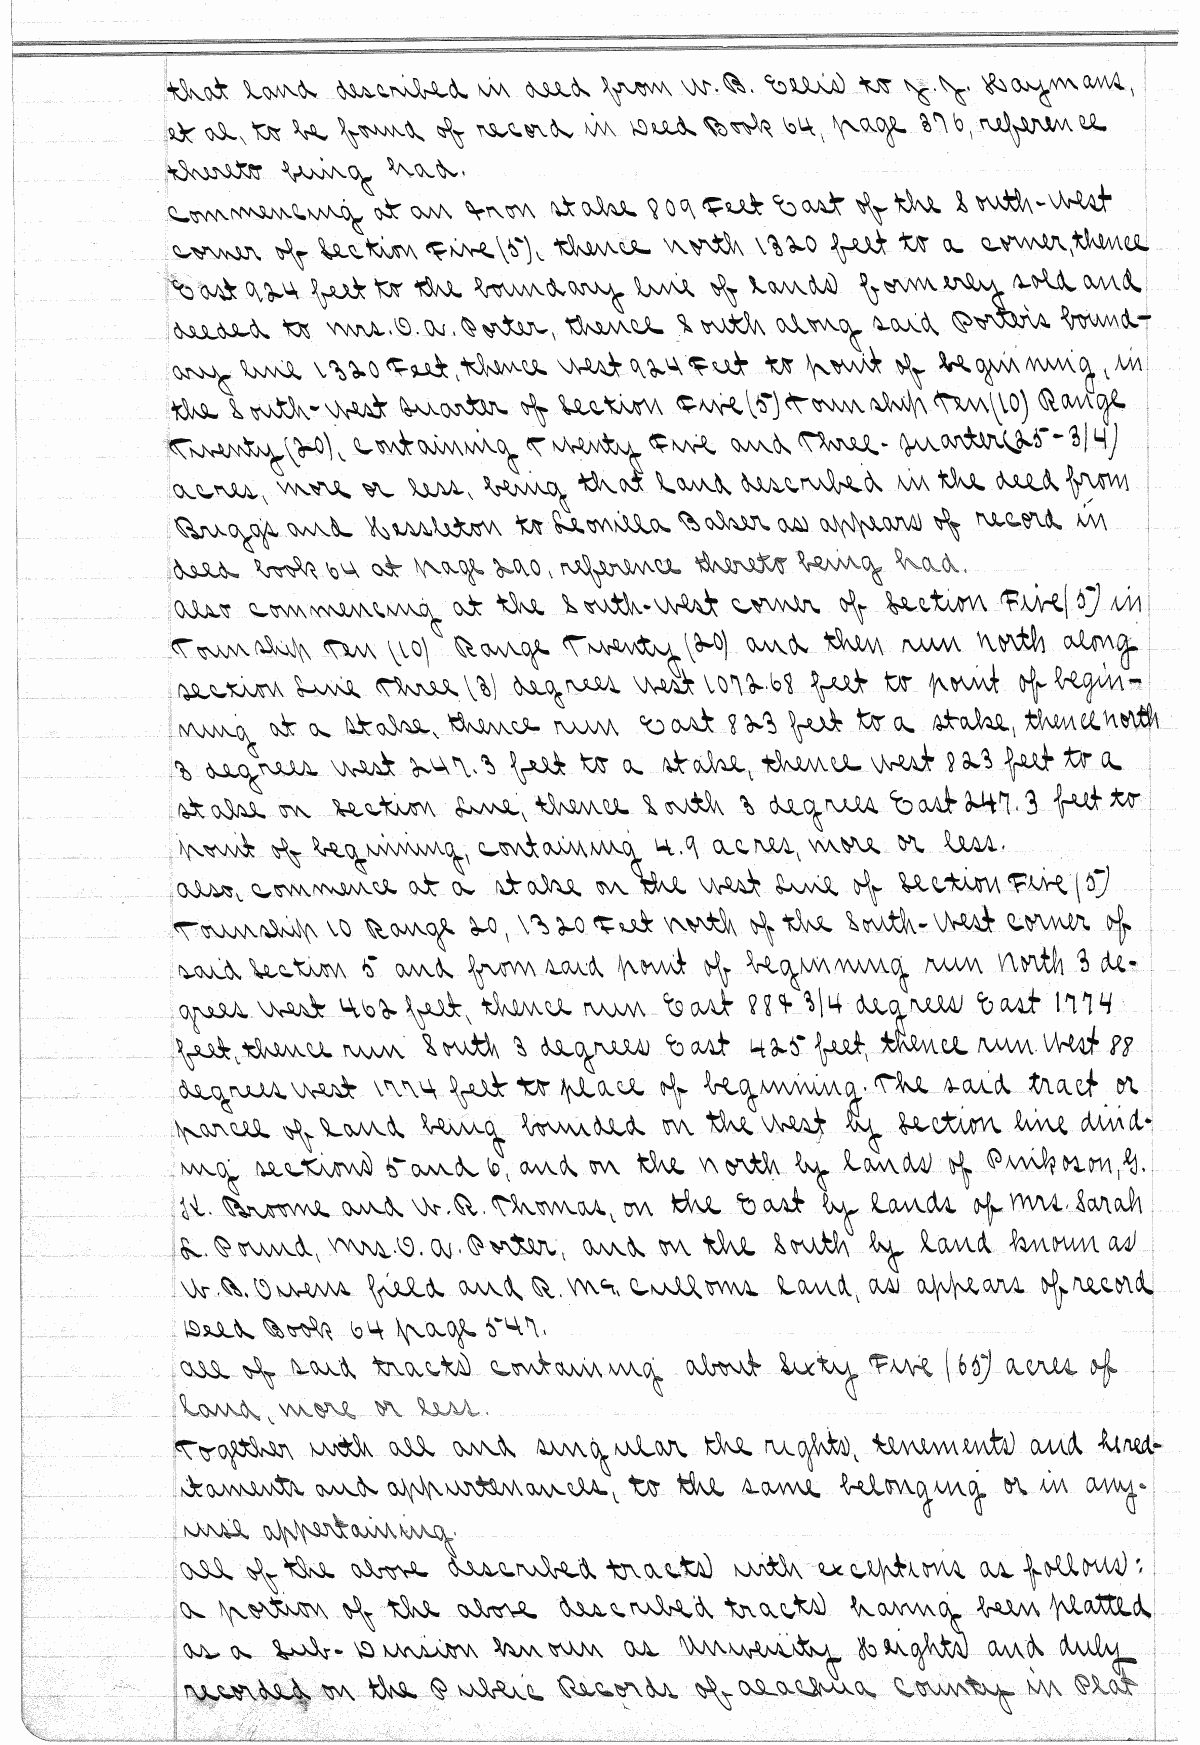 that land described in deed from W. B. Ellis to J. J. Haymans,
et al, to be found of record in Deed Book 64, page 376, reference
thereto being had.
Commencing at an Iron stake 809 Feet East of the South-West
corner of Section Five (5), thence North 1320 feet to a corner, thence
East 924 feet to the boundary line of lands formerly sold and
deeded to Mrs. O. A. Porter, thence South along said Porter's bound-
ary line 1320 Feet, thence West 924 Feet to point of beginning, in
the South-West Quarter of Section Five (5) Township Ten (10) Range
Twenty (20), Containing Twenty Five and Three-Quarter (25-3/4)
acres, more or less, being that land described in the deed from
Briggs and Hessleton to Leonilla Baker as appears of record in
deed book 64 at page 290, reference thereto being had.
Also commencing at the South-West corner of Section Five (5) in
Township Ten (10) Range Twenty (20) and then run North along
section Line Three (3) degrees West 1072.68 feet to point of begin-
ning at a stake, thence run East 823 feet to a stake, thence North
3 degrees West 247.3 feet to a stake, thence West 823 feet to a
stake on Section Line, thence South 3 degrees East 247.3 feet to
point of beginning, containing 4.9 acres, more or less.
Also, commence at a stake on the West Line of Section Five (5)
Township 10 Range 20, 1320 Feet North of the South-West corner of
said Section 5 and from said point of beginning run North 3 de-
grees West 462 feet, thence run East 88& 3/4 degrees East 1774
feet, thence run South 3 degrees East 425 feet, thence run West 88
degrees West 1774 feet to place of beginning. The said tract or
parcel of land being bounded on the West by Section line divid-
ing sections 5 and 6, and on the North by lands of Pinkoson, G.
H. Broome and W. R. Thomas, on the East by lands of Mrs. Sarah
L. Pound, Mrs. O. A. Porter, and on the South by land known as
W. B. Owens field and R. Mc. Culloms land, as appears of record
Deed Book 64 page 547.
All of said tracts containing about Sixty Five (65) acres of
land, more or less.
Together with all and singular the rights, tenements and hered-
itaments and appurtenances, to the same belonging or in any-
wise appertaining.
All of the above described tracts with exceptions as follows:
A portion of the above described tracts having been platted
as a Sub-Division known as University Heights and duly
recorded on the Public Records of Alachua County in Plat